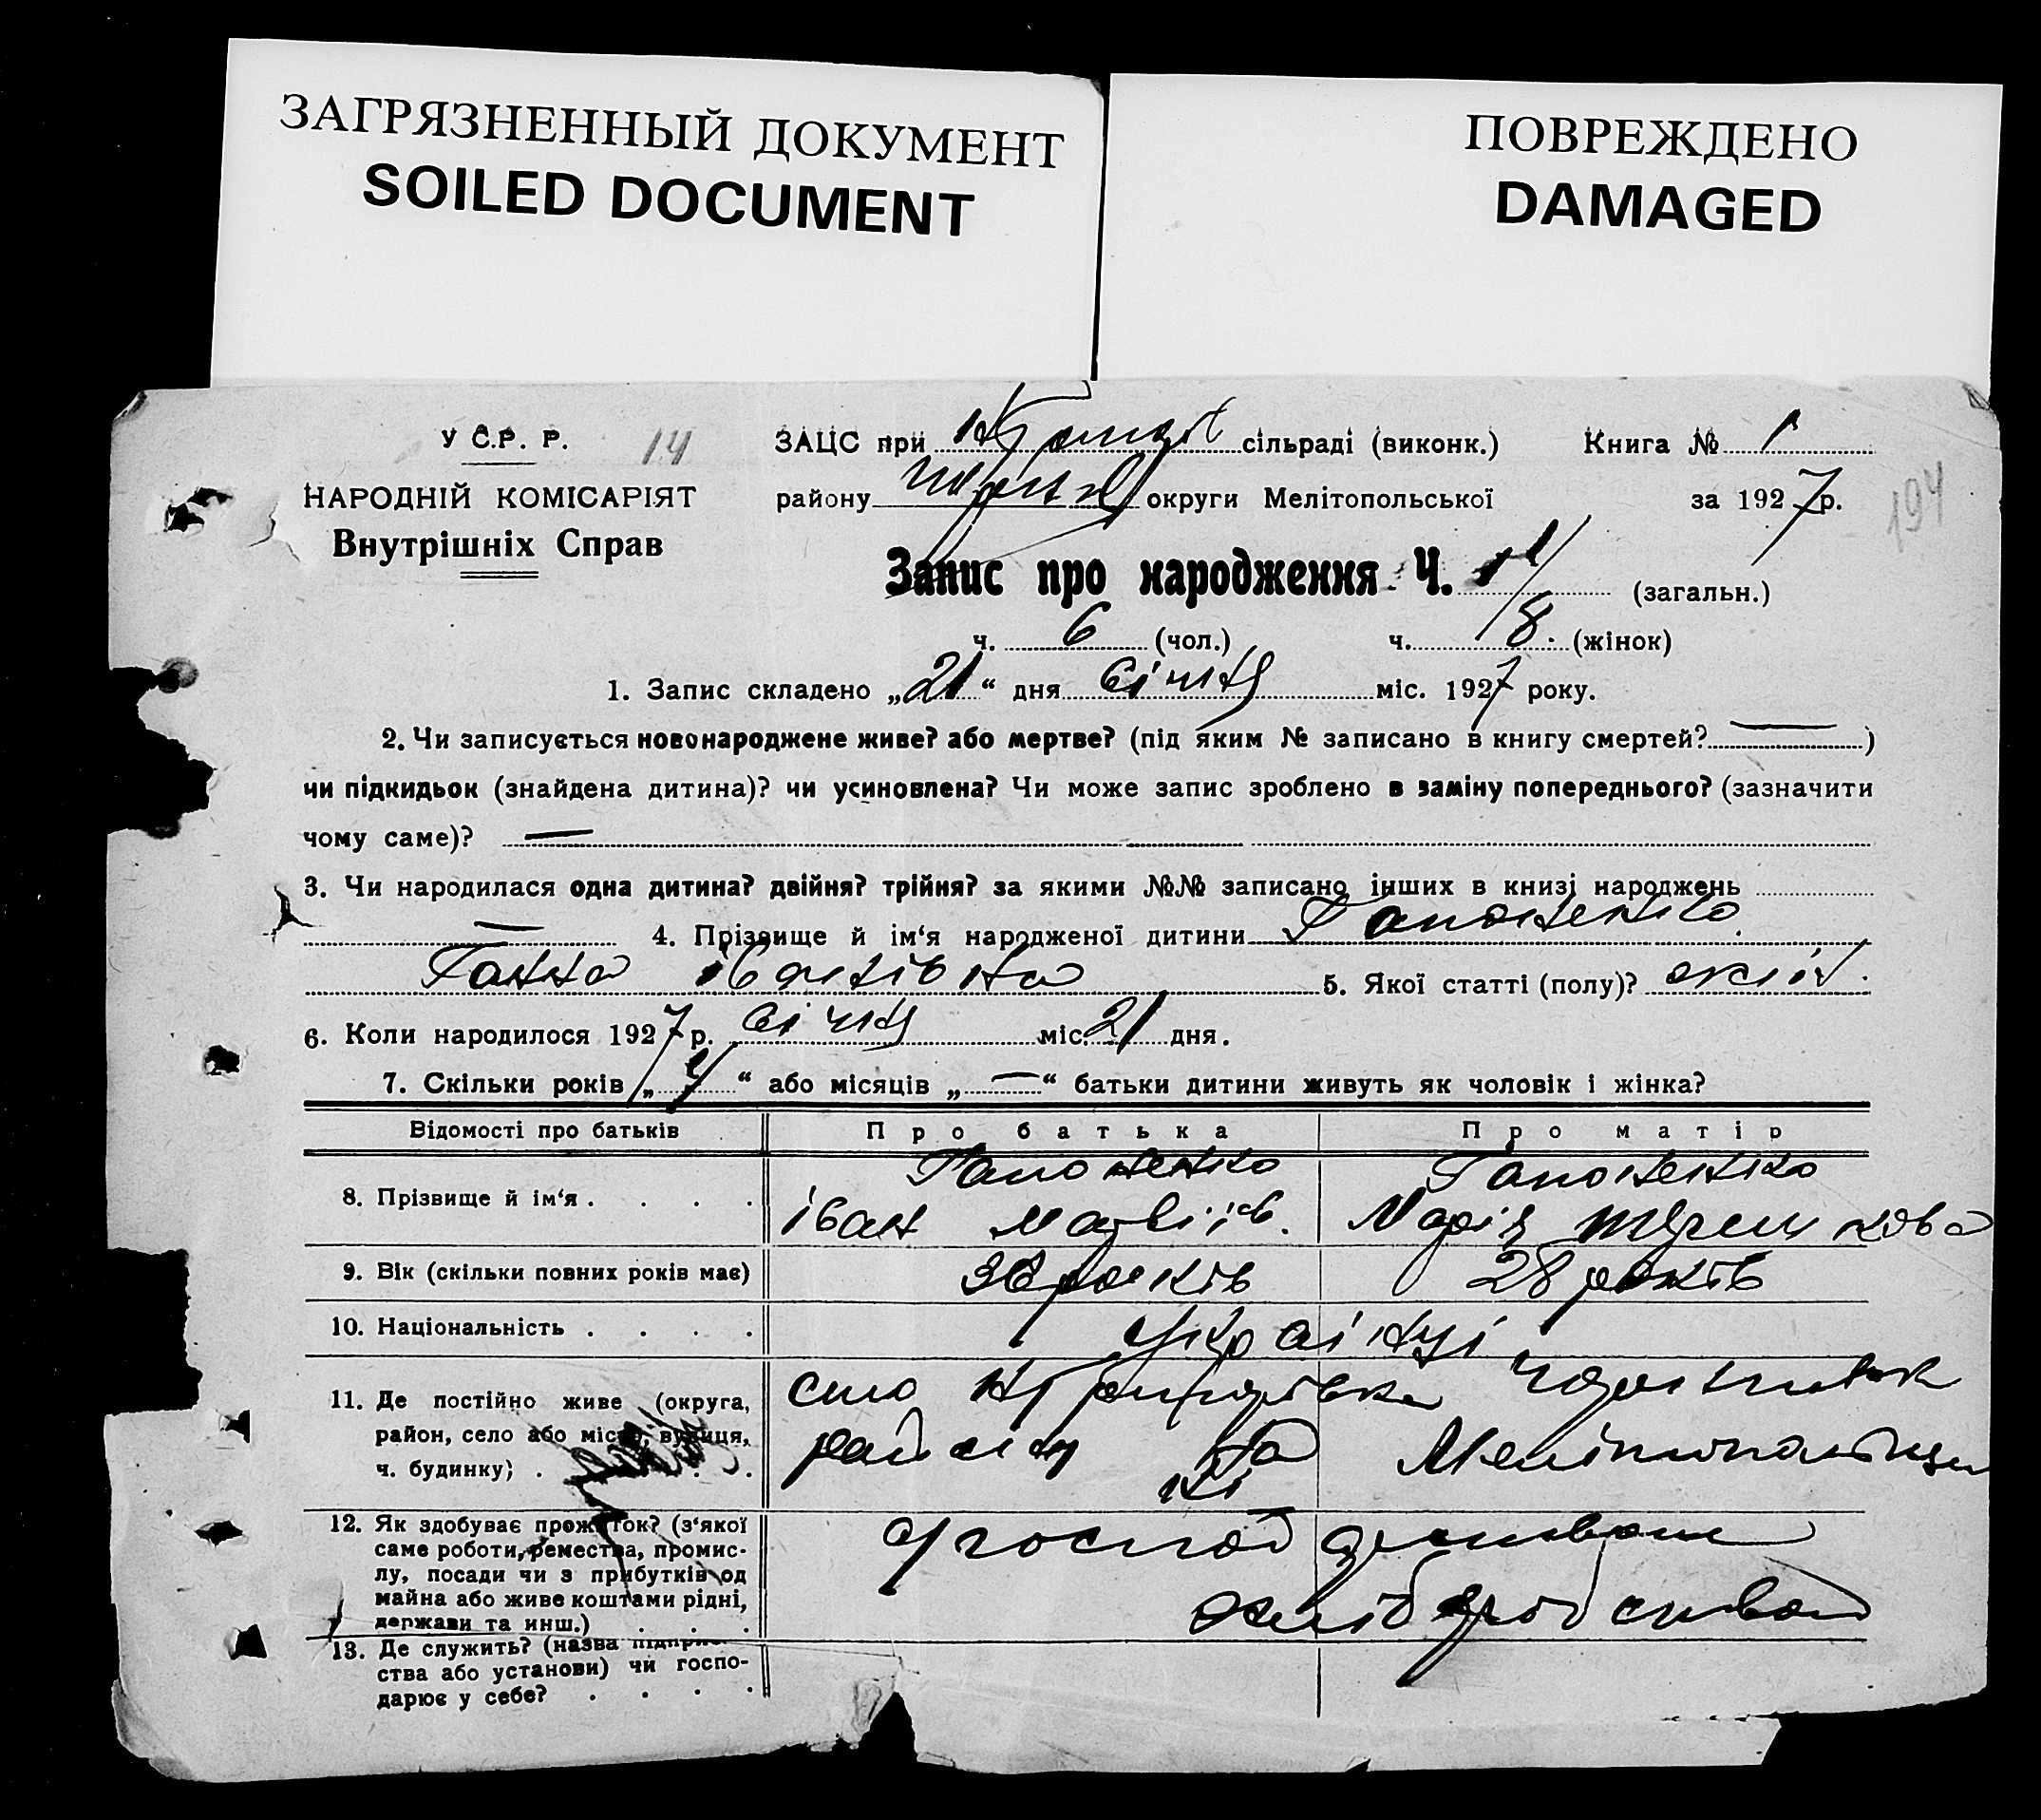 ЗАГРЯЗНЕННЫЙ ДОКУМЕНТ
SOILED DOCUMENT
ПОВРЕЖДЕНО
DAMAGED
У С.Р. Р. 14
ЗАЦС при сільраді (виконк.) Книга № 1
НАРОДНІЙ КОМІСАРІЯТ
району округи Мелітопольської за 1927 р.
194
Внутрішніх Справ
Запис про народження Ч. (загальн.)
ч. 6 (чол.) ч. 8. (жінок)
1. Запис складено „21“ дня січня міс. 1927 року.
2. Чи записується новонароджене живе? або мертве? (під яким № записано в книгу смертей? — )
чи підкидьок (знайдена дитина)? чи усиновлена? Чи може запис зроблено в заміну попереднього? (зазначити
чому саме)? —
3. Чи народилася одна дитина? двійня? трійня? за якими №№ записано інших в книзі народжень
— 4. Прізвище й ім‘я народженої дитини Гапоненко
Ганна Іванівна 5. Якої статті (полу)? жіч.
6. Коли народилося 1927 р. січня міс. 21 дня.
7. Скільки років „ “ або місяців „—“ батьки дитини живуть як чоловік і жінка?
Відомості про батьків Про батька Про матір
8. Прізвище й ім‘я . . . . Гапоненко Гапоненко
Іван Матвіїв. Марія
9. Вік (скільки повних років має) років 28 років
10. Національність . . . . Українці
11. Де постійно живе (округа, село
район, село або місто, вулиця, району Мелітопольщи
ч. будинку) . . . . ні
12. Як здобуває прожиток? (з‘якої
саме роботи, ремества, промис-
лу, посади чи з прибутків од
майна або живе коштами рідні,
держави та инш.) . . . хлібробство
13. Де служить? (назва підприє-
ства або установи) чи госпо-
дарює у себе? . . . .